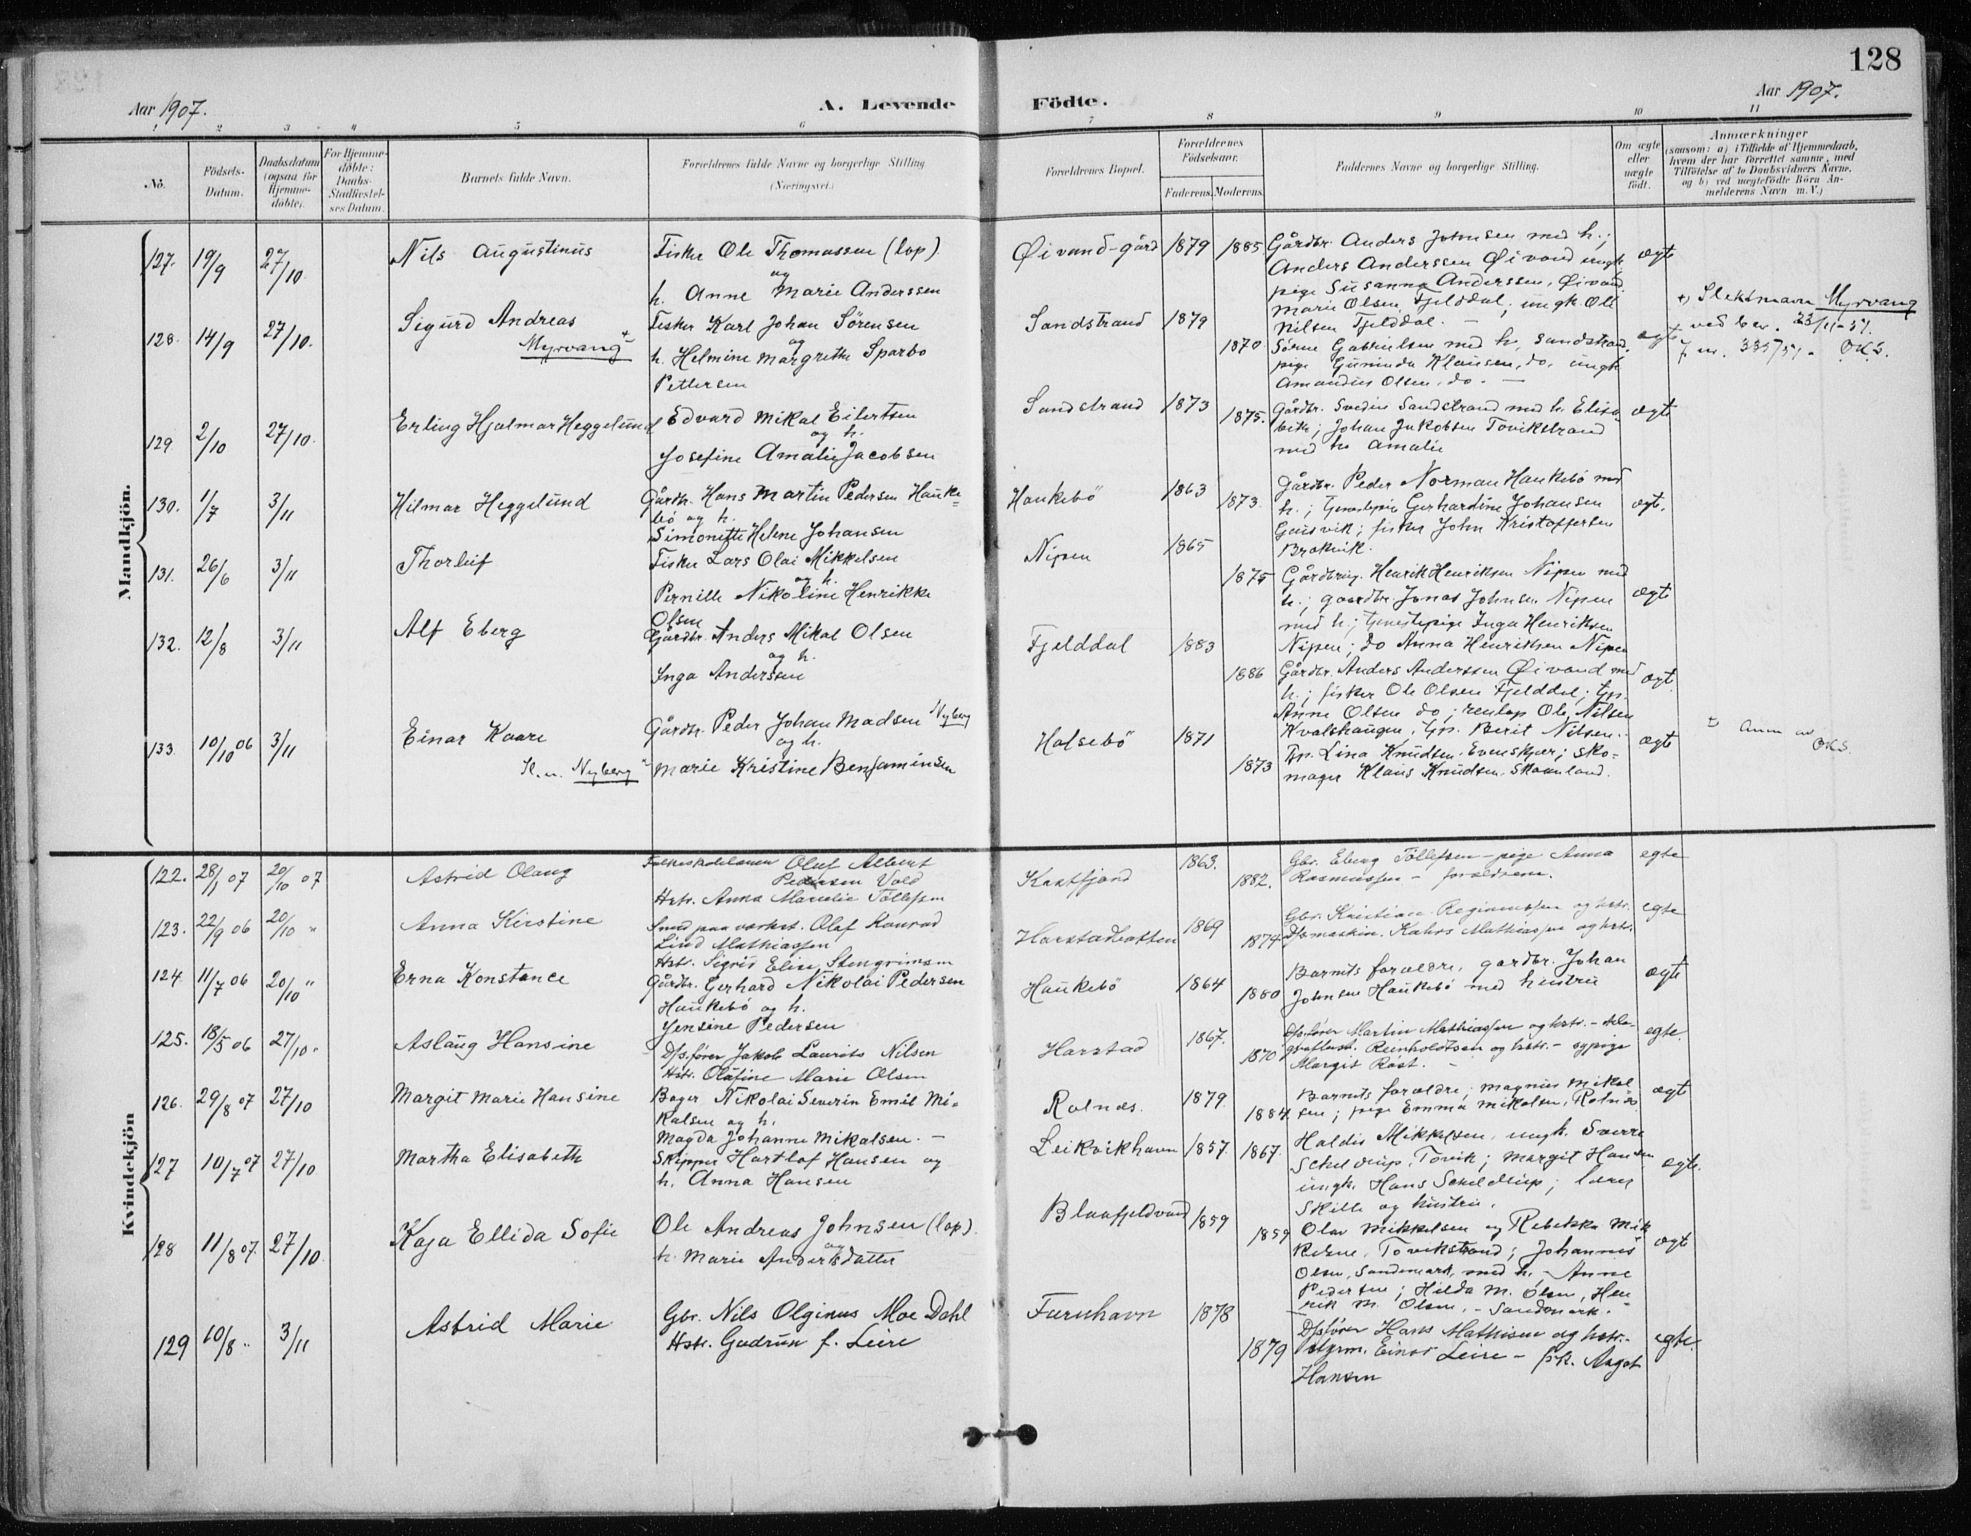 128
Aar 1907. A. Levende Födte. Aar 1907.
1 2 3 4 5 6 7 8 9 10 11
No.
Födsels-
Datum.
Daabsdatum
(ogsaa for
Hjemme-
döbte).
For Hjemme-
döbte:
Daabs-
Stadfæstel-
ses Datum.
Barnets fulde Navn.
Forældrenes fulde Navne og borgerlige Stilling
(Næringsvei.)
Forældrenes Bopæl.
Forældrenes
Födselsaar.
Faderens. Moderens.
Faddernes Navne og borgerlige Stilling.
Om ægte
eller
uægte
födt.
Anmærkninger
(saasom: a) i Tilfælde af Hjemmedaab,
hvem der har forrettet samme, med
Tilföielse af to Daabsvidners Navne,
og b) ved uægtefödte Börn An-
melderens Navn m. V.)
Mandkjön.
127. 19/9 27/10 Nils Augustinus
Fisker Ole Thomassen (lap)
og
h. Anne Marie Anderssen
Øivand-gård 1879 1885
Gårdbr. Anders Johnsen med h.;
Anders Anderssen Øivand ungk.
pige Susanna Anderssen, Øivand,
Marie Olsen Fjelddal, ungk Ole
Nilsen Fjelddal. —
ægt
128. 14/9 27/10. Sigurd Andreas
Myrvang +
Fisker Karl Johan Sörensen
og
h. Helmine Margrethe Sparbo
Pettersen
Sandstrand 1879 1870
Sörene Gabrielsen med h, Sandstrand,
pige Guninda Klausen, do, ungk
Amandus Olsen, do. —
ægt
+) Slektsnavn Myrvang
ved bev. 23/11-51.
J. nr. 335/51. O.K.S.
129 2/10 27/10. Erling Hjalmar Heggelund
Edvard Mikal Eilertsen
og h.
Josefine Amalie Jacobsen
Sandstrand 1873 1875.
Gårdbr. Svedin Sandstrand med h. Elisa
beth; Johan Jakobsen Tovikstrand
med h. Amalie
ægt
130. 1/7 3/11 Hilmar Heggelund
Gårdbr. Hans Martin Pedersen Hauke-
bö og h.
Simonette Helene Johansen
Haukebö 1863 1873.
Gårdbr. Peder Norman Haukebö med
h.; Tjenestepige Gerhardine Johansen
Gausvik; fisker John Kristoffersen
Brokvik.
ægt.
131. 26/6 3/11 Thorleif
Fisker Lars Olai Mikkelsen
og h.
Pernille Nikoline Henrikke
Olsen
Nipen 1865 1875
Gårdbrug. Henrik Henriksen Nipen med
h.; gaardbr Jonas Johnsen Nipen
med h.; tjenestepige Inga Henriksen
Nipen; do Anna Henriksen Nipen
ægt
132. 12/8 3/11 Alf Eberg
Gårdbr. Anders Mikal Olsen
og h.
Inga Anderssen
Fjelddal 1883 1886
Gårdbr. Anders Anderssen Øivand med
h.; fisker Ole Olsen Fjelddal; tjp.
Anne Olsen do; renlap Ole Nilsen
Kvalshaugen, tjp. Berit Nilsen.
ægt
133. 10/10 06 3/11 Einar Kaare
Sl.n. Nyberg
Gårdbr. Peder Johan Madsen Nyberg
og h.
Marie Kristine Benjaminsen
Halsebö 1871 1873
Tjp. Lina Knudsen. Evenskjer; sko-
mager Klaus Knudsen. Skaanland.
ægt
Anm av
OKS.
Kvindekjön
122. 28/1 07 20/10 07 Astrid Olaug
Folkeskolelærer Oluf Albert
Pedersen Vold
Hstr. Anna Marelie Tollefsen
Kaafjord 1863. 1882.
Gbr. Eberg Tollefsen - pige Anna
Rasmussen - forældrene.
egte
123. 22/9 06 20/10 " Anna Kirstine
Smed paa verkst. Olaf Konrad
Lind Mathiassen
Hstr. Sigrid Elise Stengrimsen
Harstadbotten 1869 1874
Gbr. Kristian Regimussen og hstr.
Dfsmaskin. Kahrs Mathiassen og hstr.
egte
124. 11/7 06 20/10 " Erna Konstance
Gårdbr. Gerhard Nikolai Pedersen
Haukebö og h.
Jensine Pedersen
Haukebö 1864 1880
Barnets forældre, gardbr. Johan
Johnsen Haukebö med hustru
ægt
125. 18/5 06 27/10. Aslaug Hansine
Dfsförer Jakob Laurits Nilsen
Hstr. Olafine Marie Olsen
Harstad 1867. 1870
Dfsförer Martin Mathiassen og hstr. - tele-
grafbest. Reinholdtsen og hstr. - sypige
Margit Rost. —
egte.
126. 29/8 07 27/10 Margit Marie Hansine
Bager Nikolai Severin Emil Mi-
kalsen og h.
Magda Johanne Mikalsen. —
Rolnes. 1879. 1884.
Barnets forældre; Magnus Mikal
sen; pige Emma Mikalsen, Rolnæs
ægt
127 10/7 07 27/10 Martha Elisabeth
Skipper Hartlof Hansen og
h. Anna Hansen
Leikvikhavn 1857. 1867.
Haldis Mikkelsen, ungk. Sverre
Scheldrup, Tovik; Margit Hansen
ungk. Hans Scheldrup; lærer
Skille og hustru.
egte.
128 11/8 07. 27/10. Kaja Ellida Sofie
Ole Andreas Johnsen (lap).
og
h. Marie Andersdatter
Blaafjeldvand 1859 1859
Olav Mikkelsen og Rebekka Mik
kelsen, Tovikstrand; Johannes
Olsen, Sandemark, med h. Anne
Pedersen; Hilda M. Olsen, Hen
rik M. Olsen. - Sandmark. -
ægt
129 10/8 .. 3/11 Astrid Marie
Gbr. Nils Olginus Moe Dahl
Hstr. Gudrun f. Leire
Furuhavn 1878 1879
Dfsförer Hans Mathisen og hstr. -
Styrm. Einar Leire - frk. Aagot
Hansen
egte.